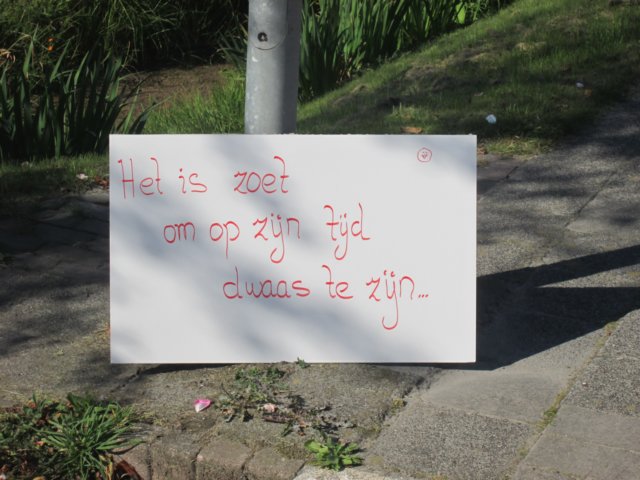 Het is zoet
om op zijn tijd
dwaas te zijn...